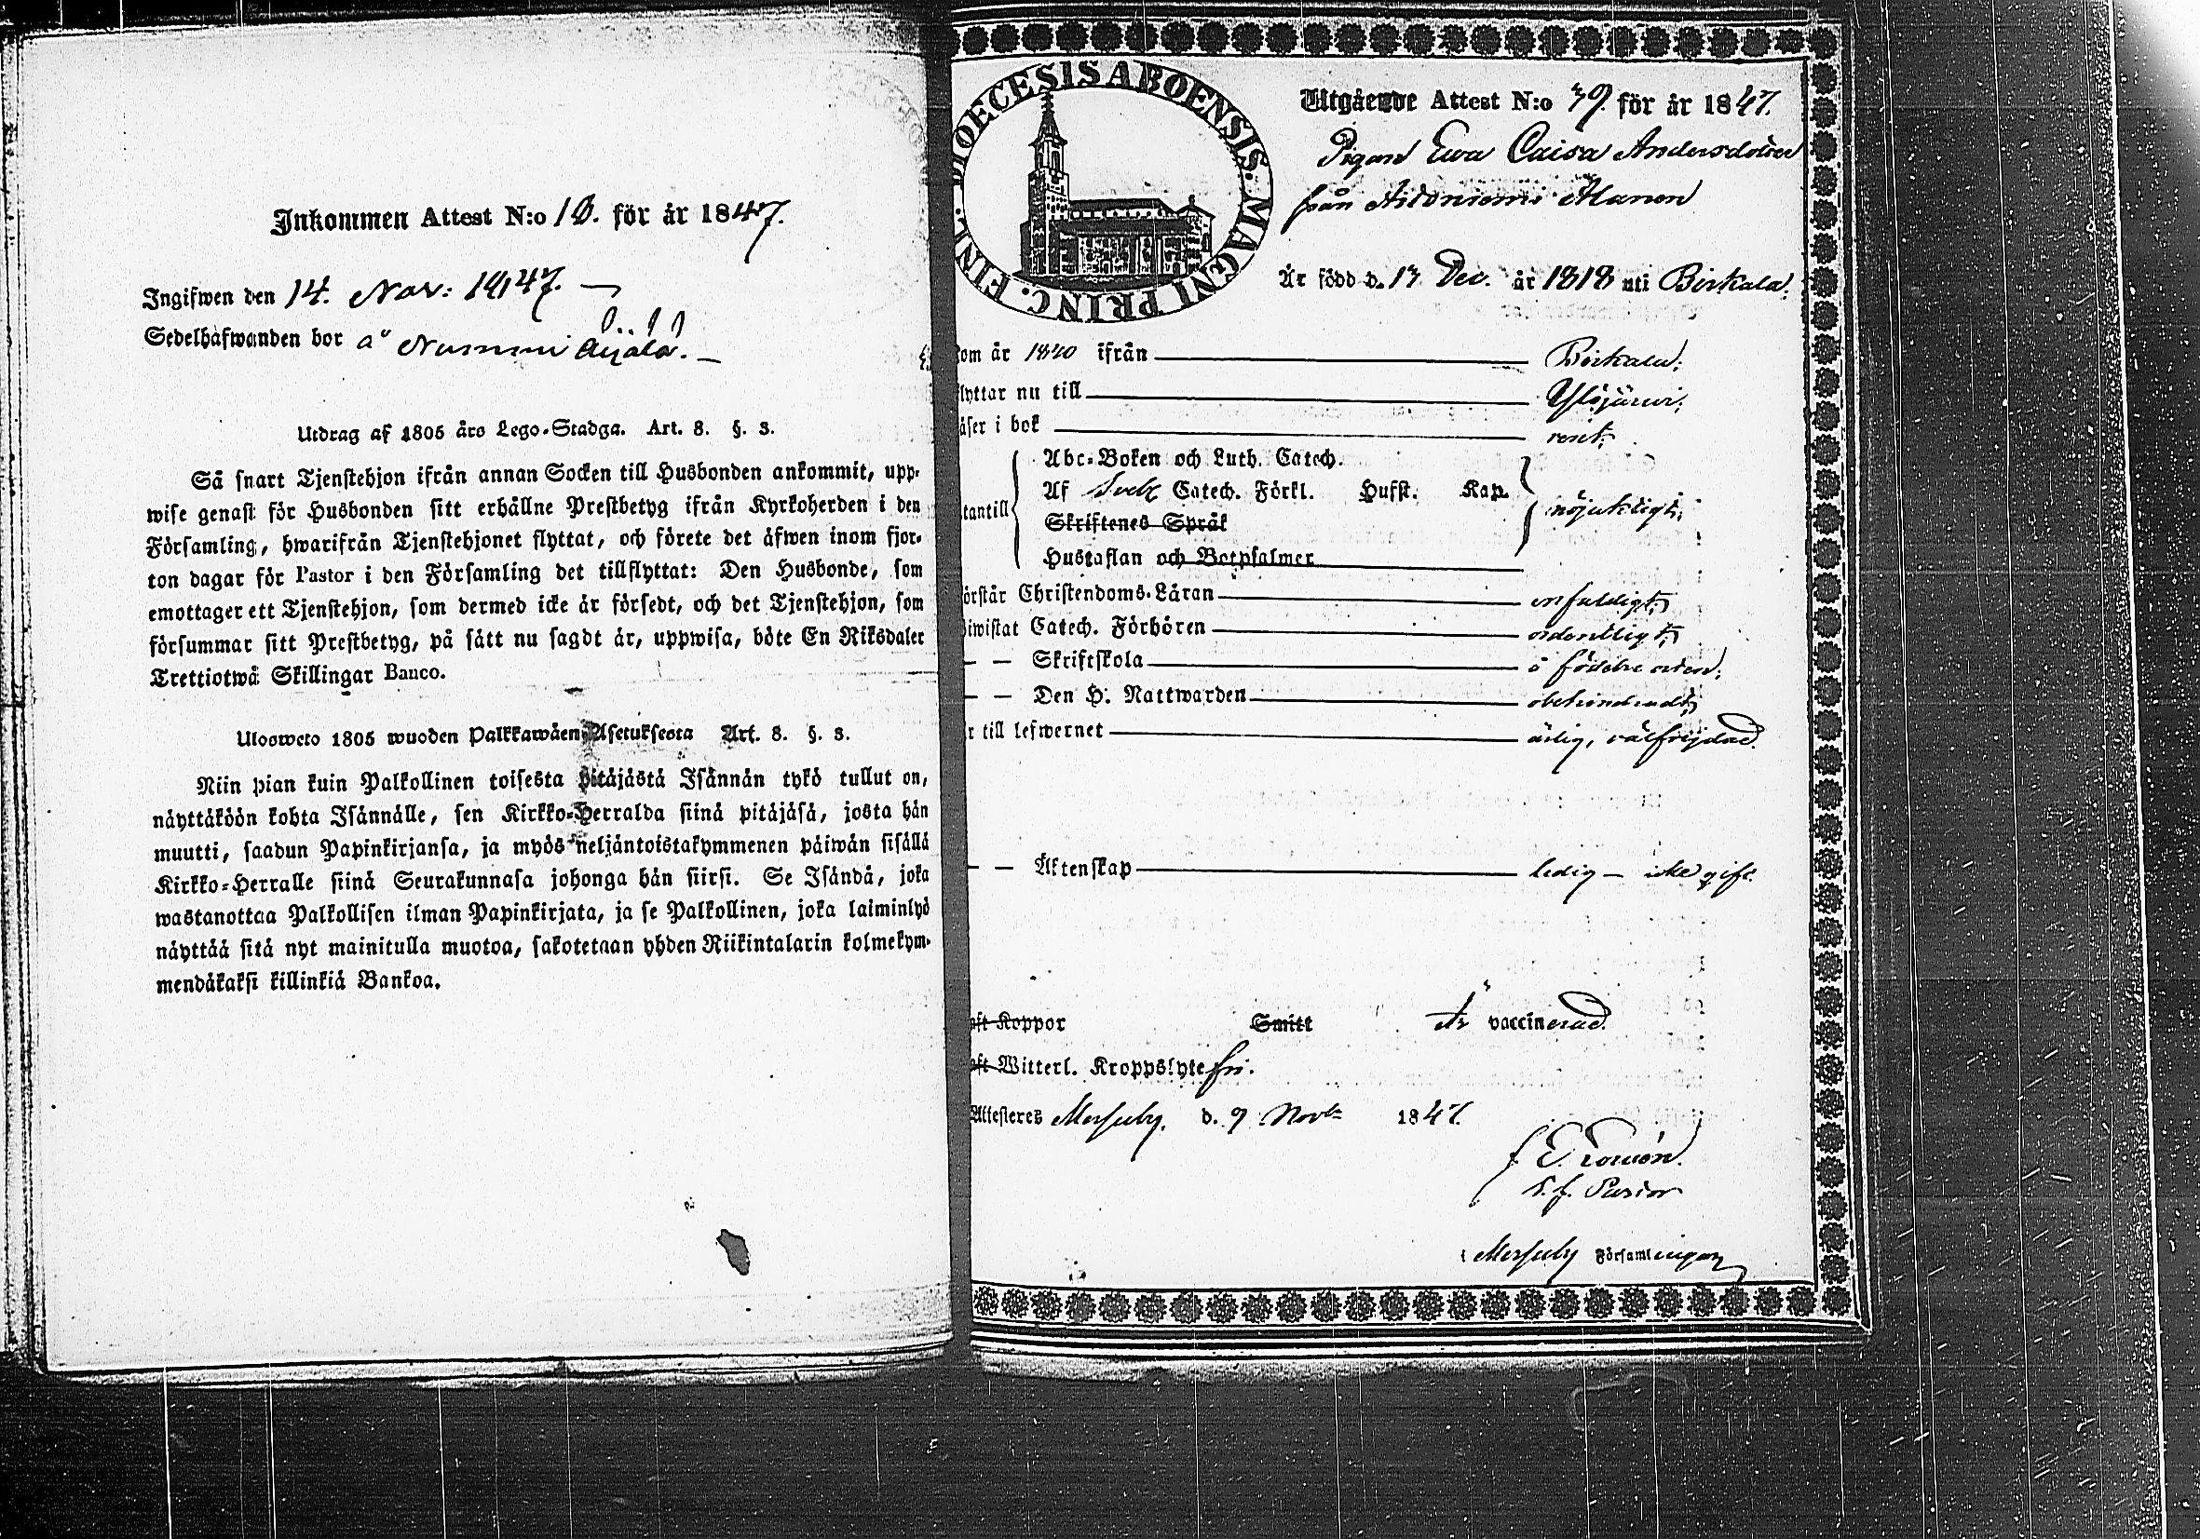 Inkommen Attest N:o 10. för år 1847.
Ingifwen den 14. Nov: 1847. —
Sedelhafwanden bor å Nummi Äijälä. —
Utdrag af 1805 års Lego-Stadga. Art. 8. §. 3.
Så snart Tjenstehjon ifrån annan Socken till Husbonden ankommit, upp-
wise genast för Husbonden sitt erhållne Prestbetyg ifrån Kyrkoherden i den
Församling, hwarifrån Tjenstehjonet flyttat, och förete det åfwen inom fjor-
ton dagar för Pastor i den Församling det tillflyttat: Den Husbonde, som
emottager ett Tjenstehjon, som dermed icke är försedt, och det Tjenstehjon, som
försummar sitt Prestbetyg, på sätt nu sagdt är, uppwisa, böte En Riksdaler
Trettiotwå Skillingar Banco.
Ulosweto 1805 wuoden Palkkawäen-Asetuksesta Art. 8. §. 3.
Niin pian kuin Palkollinen toisesta pitäjästä Isännän tykö tullut on,
näyttäköön kohta Isännälle, sen Kirkko-Herralda siinä pitäjäsä, josta hän
muutti, saadun Papinkirjansa, ja myös neljäntoistakymmenen päiwän sisällä
Kirkko-Herralle siinä Seurakunnasa johonga hän siirsi. Se Isändä, joka
wastanottaa Palkollisen ilman Papinkirjata, ja se Palkollinen, joka laiminlyö
näyttää sitä nyt mainitulla muotoa, sakotetaan yhden Riikintalarin kolmekym-
mendäkaksi killinkiä Bankoa.
DIOECESIS ABOENSIS. MAGNI PRINC. FINL.
Utgående Attest N:o 39. för år 1847.
Pigan Ewa Caisa Andersdotter
från Alanen
Är född d. 13 Dec. år 1818 uti Birkala;
kom år 1840 ifrån Birkala;
flyttar nu till Ylöjärwi;
läser i bok rent;
Abc-Boken och Luth. Catech.
Af Sveb Catech. Förkl. Husst. Kap.
utantill nöjaktigt;
Skriftenes Språk
Hustaflan och Botpsalmer
förstår Christendoms-Läran enfaldigt;
biwistat Catech. Förhören ordentligt;
— — Skriftskola
— — Den H. Nattwarden obehindradt;
är till lefwernet ärlig, välfrejdad.
— — Äktenskap ledig — icke gift.
haft Koppor Smitt Är vaccinerad.
haft Witterl. Kroppslyte fri.
Attesteres Messuby. d. 9 Novbr 1847.
v. f. Pastor
i Messuby Församlingar